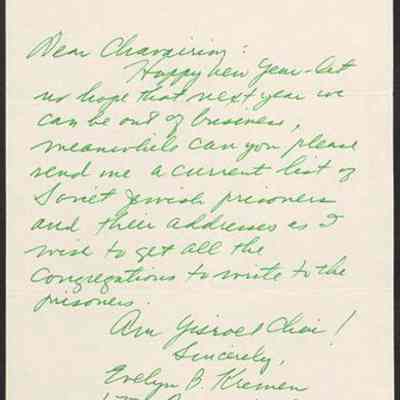 Dear Chavairim:
Happy New Year - let
us hope that next year we
can be out of business,
meanwhile can you please
send me a current list of
Soviet Jewish prisoners
and their addresses as I
wish to get all the
Congregations to write to the
prisoners.
Am Yisroel Chai!
Sincerely,
Evelyn B. Kremen